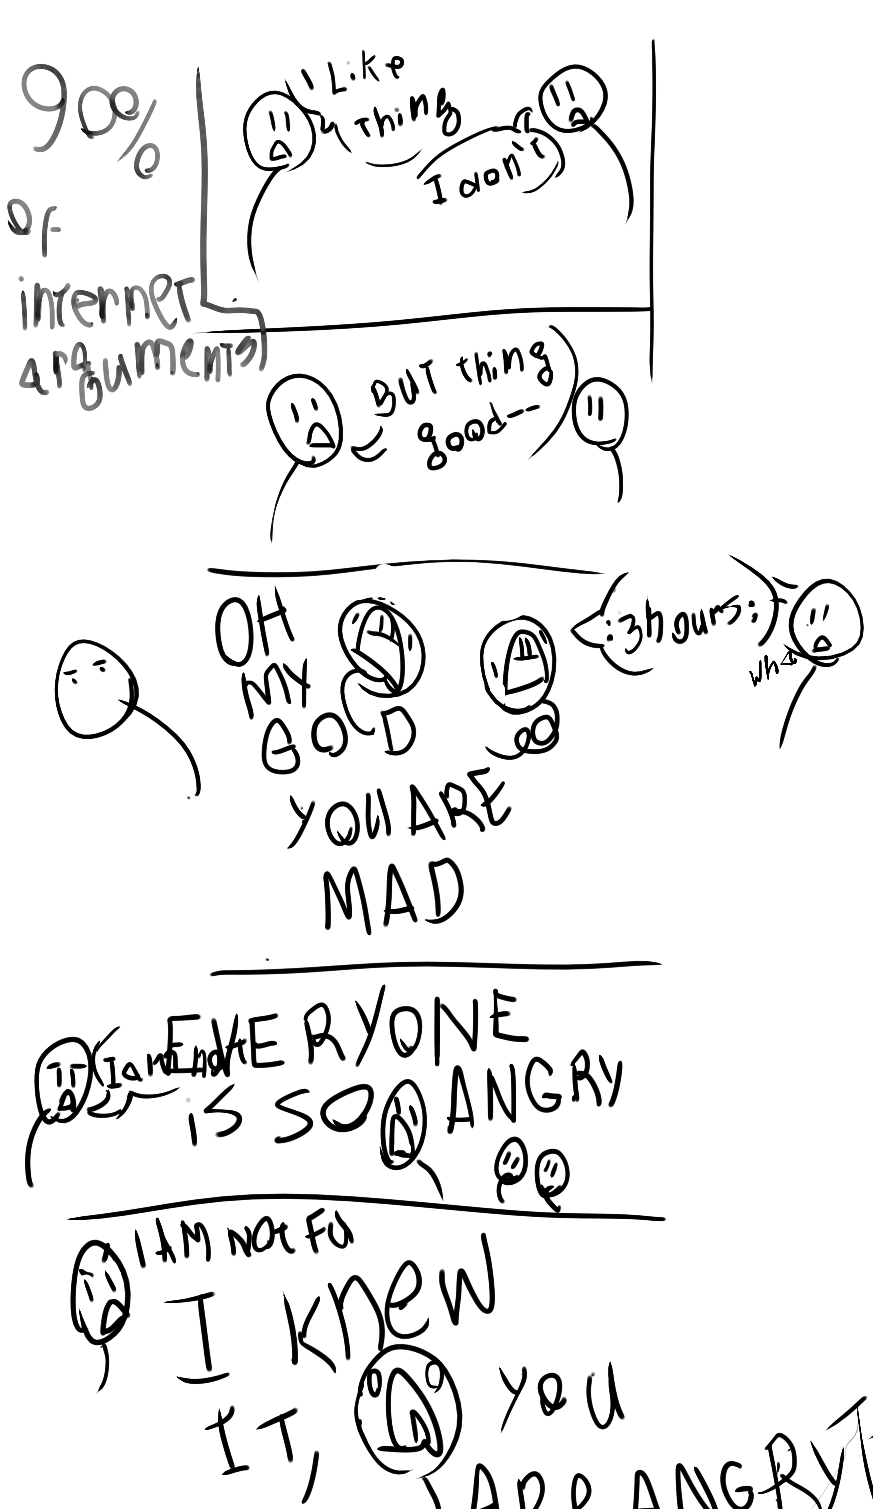 90%
of
internet
arguments
I Like
thing
I don't
BUT thing
good--
OH
MY
GOD
YOU ARE
MAD
:3hours:
wha
EVERYONE
I am not
IS SO ANGRY
I AM NOt FU
I knew
IT, you
ARE ANGRY